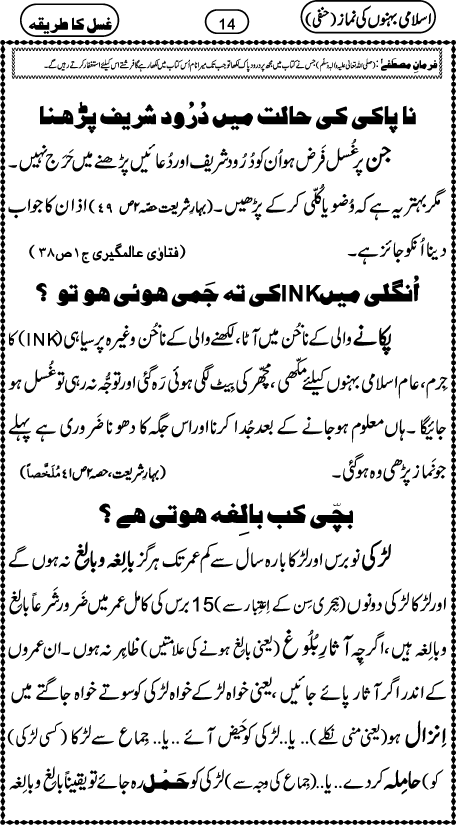 اسلامی بہنوں کی نماز (حنفی)
14
غسل کا طریقہ
فرمانِ مصطفٰے: (صلی اللہ تعالیٰ علیہ واٰلہٖ وسلم) جس نے کتاب میں مجھ پر درود پاک لکھا تو جب تک میرا نام اُس کتاب میں لکھا رہے گا فرشتے اس کیلئے استغفار کرتے رہیں گے۔
ناپاکی کی حالت میں دُرُود شریف پڑھنا
جن پر غُسل فَرض ہو اُن کو دُرُود شریف اور دُعائیں پڑھنے میں حَرَج نہیں۔
مگر بہتر یہ ہے کہ وُضو یا کُلّی کر کے پڑھیں۔ (بہارِ شریعت حصّہ ۲ ص ۴۹) اذان کا جواب
دینا اُنکو جائز ہے۔ (فتاوٰی عالمگیری ج ۱ ص ۳۸)
اُنگلی میں INK کی تہ جَمی ہوئی ہو تو ؟
پکانے والی کے ناخُن میں آٹا، لکھنے والی کے ناخُن وغیرہ پر سیاہی (INK) کا
جِرم، عام اسلامی بہنوں کیلئے مکّھی، مچّھر کی بِیٹ لگی ہوئی رَہ گئی اور توجُّہ نہ رہی تو غُسل ہو
جائیگا۔ ہاں معلوم ہو جانے کے بعد جُدا کرنا اور اس جگہ کا دھونا ضَروری ہے پہلے
جو نَماز پڑھی وہ ہوگئی۔ (بہارِ شریعت، حصہ ۲ ص ۴۱ مُلَخَّصاً)
بچّی کب بالِغہ ہوتی ھے ؟
لڑکی نو برس اور لڑکا بارہ سال سے کم عمر تک ہرگز بالِغہ و بالِغ نہ ہوں گے
اور لڑکا لڑکی دونوں (ہِجری سِن کے اِعتِبار سے) 15 برس کی کامل عمر میں ضَرور شَرعاً بالِغ
و بالِغہ ہیں، اگرچِہ آثارِ بُلُوغ (یعنی بالِغ ہونے کی علامتیں) ظاہر نہ ہوں۔ ان عمروں
کے اندر اگر آثار پائے جائیں، یعنی خواہ لڑکے خواہ لڑکی کو سوتے خواہ جاگتے میں
اِنزال ہو (یعنی منی نکلے).. یا.. لڑکی کو حَیض آئے .. یا.. جِماع سے لڑکا (کسی لڑکی
کو) حامِلہ کر دے.. یا.. (جِماع کی وجہ سے) لڑکی کو حَمْل رہ جائے تو یقیناً بالِغ و بالِغہ